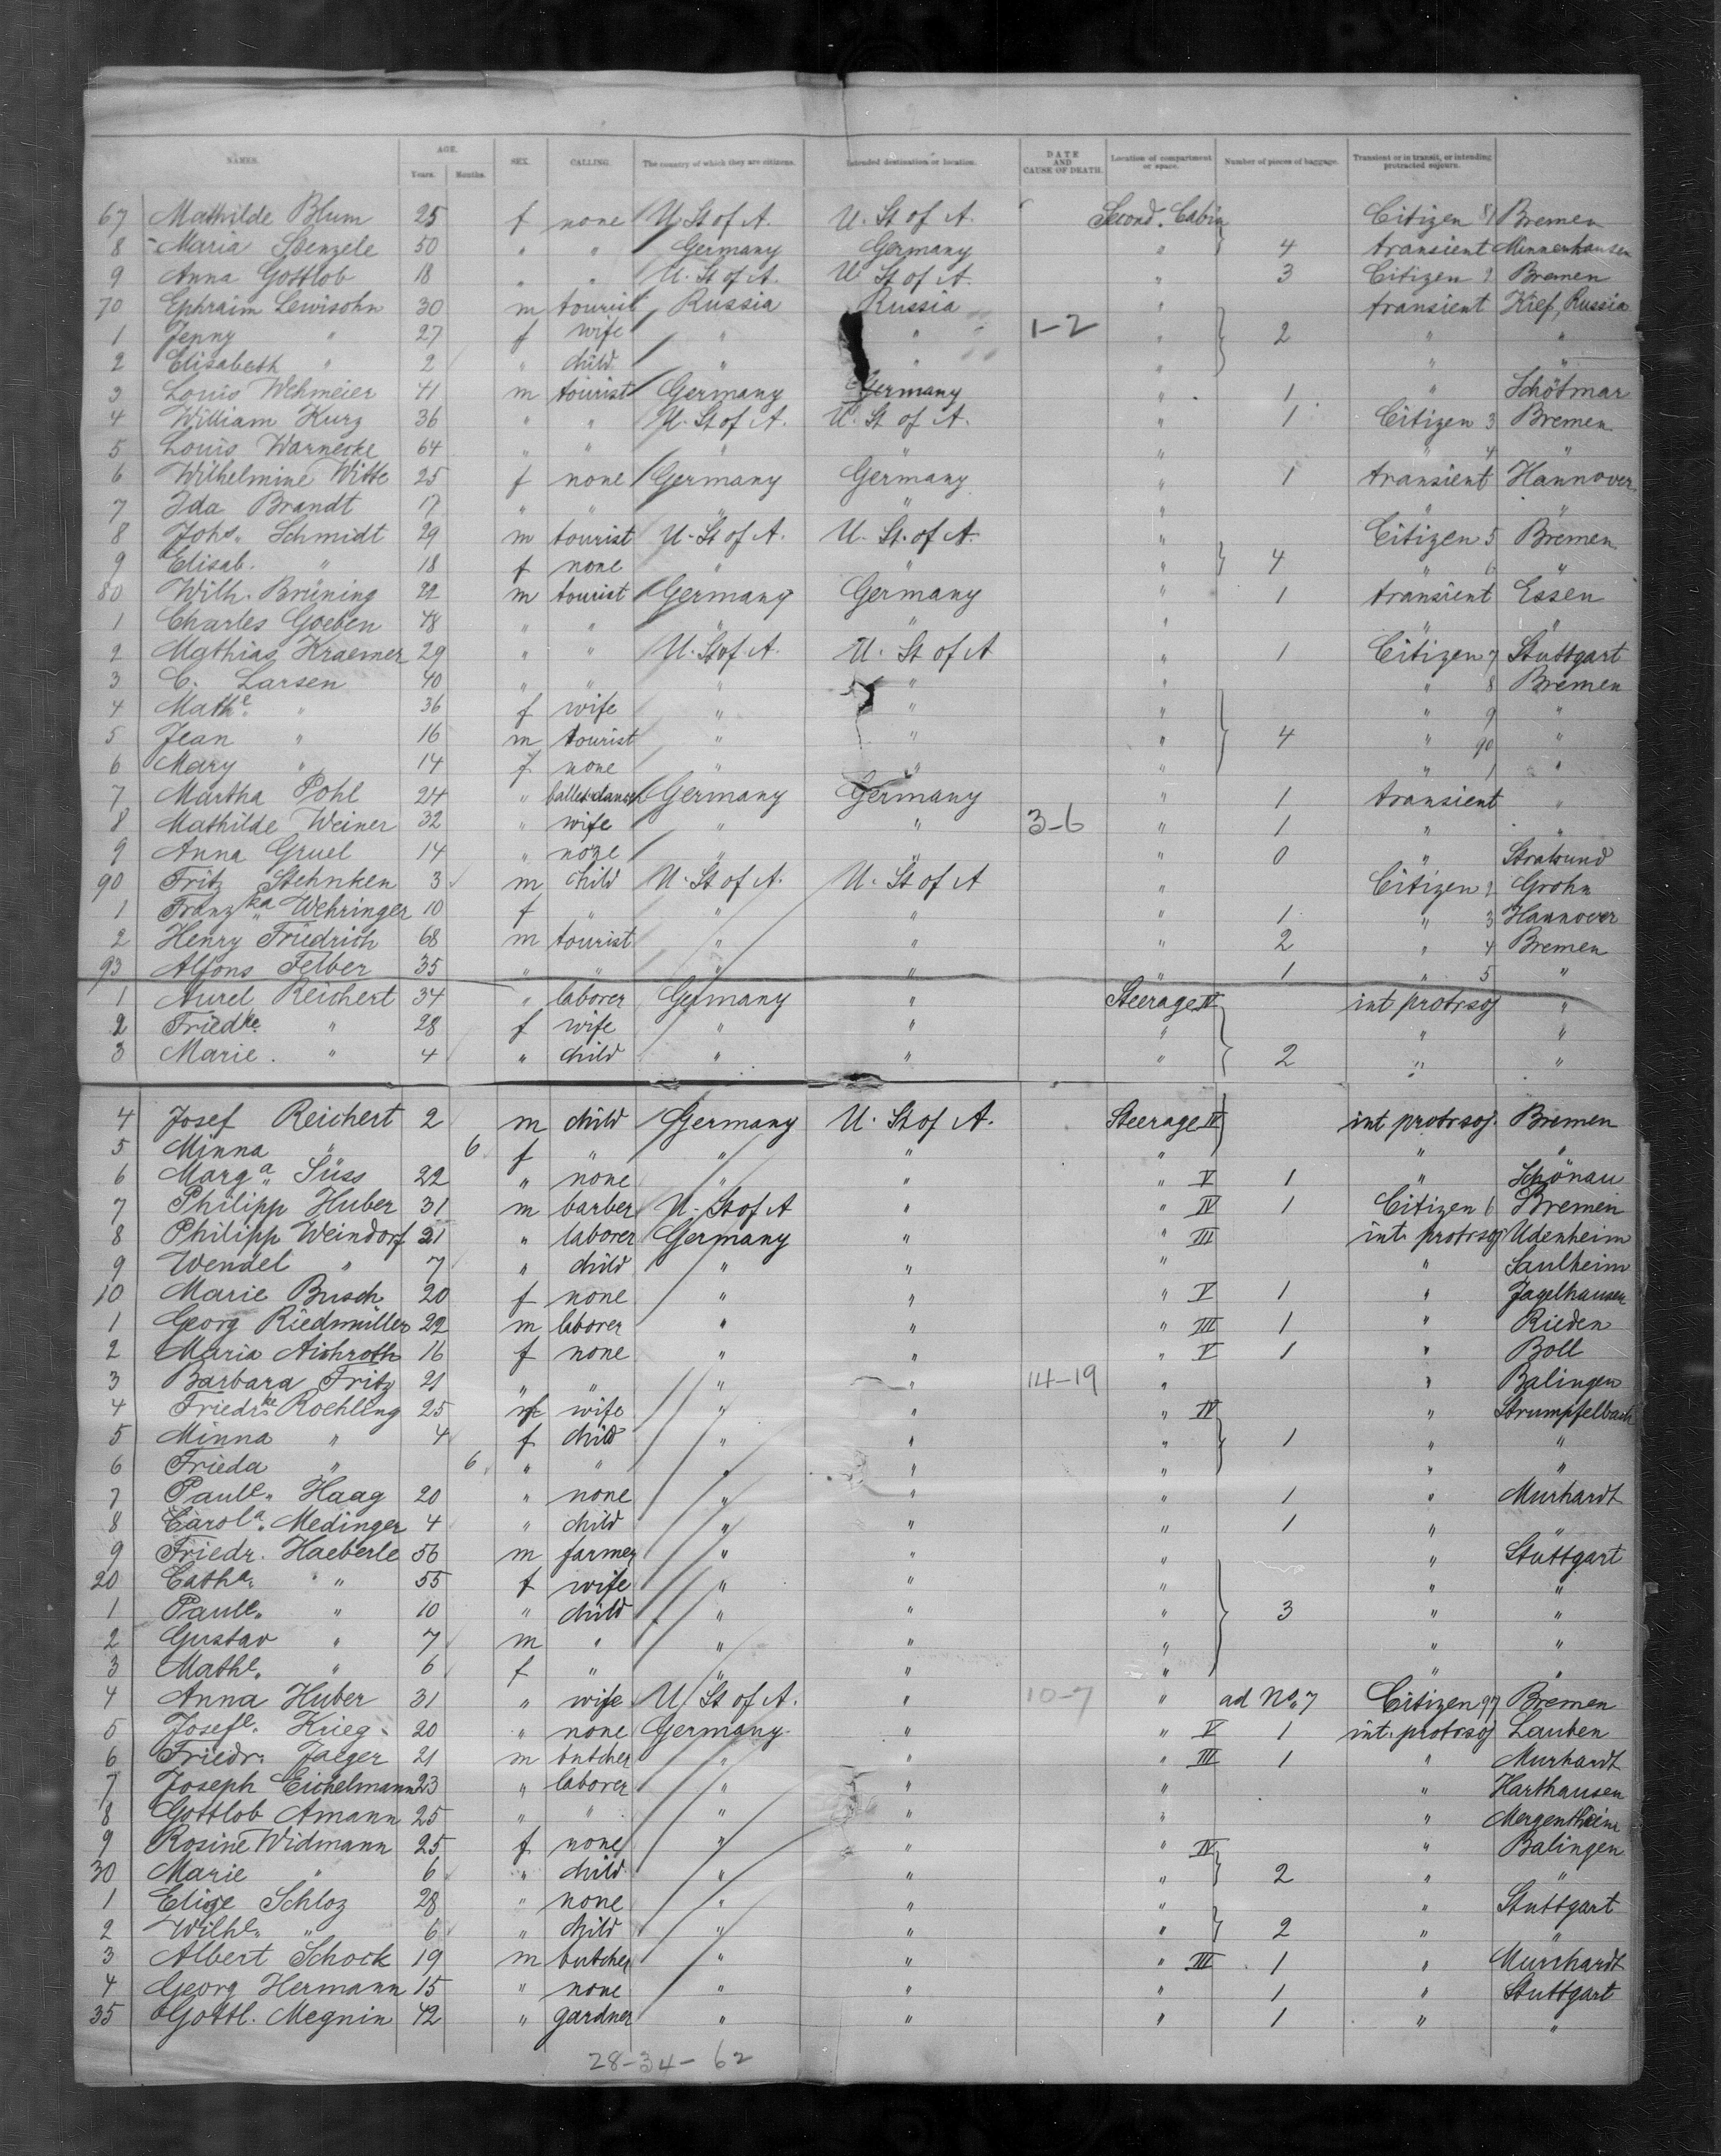 NAMES. AGE. Years. Months. SEX. CALLING. The country of which they are citizens. Intended destination or location. DATE AND CAUSE OF DEATH. Location of compartment or space. Number of pieces of baggage. Transient or in transit, or intending protracted sojourn.
67 Mathilde Blum 25 f none U. St of A. U. St of A. Second. Cabin Citizen 81 Bremen
8 Maria Stenzele 50 " " Germany Germany " 4 transient Minnenhausen
9 Anna Gottlob 18 " " U. St of A. U. St of A. " 3 Citizen 2 Bremen
70 Ephraim Lewisohn 30 m tourist Russia Russia " transient Kief, Russia
1 Jenny " 27 f wife " " 1-2 " 2 " "
2 Elisabeth " 2 " child " " " " "
3 Louis Wehmeier 41 m tourist Germany Germany " 1 " Schötmar
4 William Kurz 36 " " U. St of A. U. St of A. " 1 Citizen 3 Bremen
5 Louis Warnecke 64 " " " " " " 4 "
6 Wilhelmine Witte 25 f none Germany Germany " 1 transient Hannover
7 Ida Brandt 17 " " " " " " "
8 Johs. Schmidt 29 m tourist U. St of A. U. St. of A. " Citizen 5 Bremen
9 Elisab. " 18 f none " " " 4 " 6 "
80 Wilh. Brüning 22 m tourist Germany Germany " 1 transient Essen
1 Charles Goeben 48 " " " " " " "
2 Mathias Kraemer 29 " " U. St of A. U. St of A " 1 Citizen 7 Stuttgart
3 C. Larsen 40 " " " " " 8 Bremen
4 Mathe. " 36 f wife " " " " 9 "
5 Jean " 16 m tourist " " " 4 " 90 "
6 Mary " 14 f none " " " " 1 "
7 Martha Pohl 24 " ballet dancer Germany Germany " 1 transient "
8 Mathilde Weiner 32 " wife " " 3-6 " 1 " "
9 Anna Gruel 14 " none " " " 0 " Stralsund
90 Fritz Stehnken 3 m child U. St of A. U. St of A " Citizen 2 Grohn
1 Franzka Wehringer 10 f " " " " 1 " 3 Hannover
2 Henry Friedrich 68 m tourist " " " 2 " 4 Bremen
93 Alfons Felber 35 " " " " " 1 " 5 "
1 Aurel Reichert 34 " laborer Germany " Steerage IV int protrsoj "
2 Friedke " 28 f wife " " " " "
3 Marie. " 4 " child " " " 2 " "
4 Josef Reichert 2 m child Germany U. St of A. Steerage IV int protrsoj. Bremen
5 Minna " 6 f " " " " " "
6 Marga. Süss 22 " none " " " V 1 " Schönau
7 Philipp Huber 31 m barber U. St of A " " IV 1 Citizen 6 Bremen
8 Philipp Weindorf 21 " laborer Germany " " III int. protrsoj Udenheim
9 Wendel " 7 " child " " " " Saulheim
10 Marie Busch 20 f none " " " V 1 " Jagelhausen
1 Georg Riedmüller 22 m laborer " " " III 1 " Rieden
2 Maria Aichroth 16 f none " " " V 1 " Boll
3 Barbara Fritz 21 " " " " 14-19 " " Balingen
4 Friedrke Roehling 25 f wife " " " IV " Strumpfelbach
5 Minna " 4 f child " " " 1 " "
6 Frieda " 6 " " " " " " "
7 Paule. Haag 20 " none " " " 1 " Murhardt
8 Carola. Medinger 4 " child " " " 1 " "
9 Friedr. Haeberle 56 m farmer " " " " Stuttgart
20 Catha. " 55 f wife " " " " "
1 Paule. " 10 " child " " " 3 " "
2 Gustav " 7 m " " " " " "
3 Mathe. " 6 f " " " " " "
4 Anna Huber 31 " wife U. St of A. " 10-7 " ad No. 7 Citizen 97 Bremen
5 Josefe. Krieg 20 " none Germany " " V 1 int. protrsoj Lauben
6 Friedr. Jaeger 21 m butcher " " " III 1 " Murhardt
7 Joseph Eichelmann 23 " laborer " " " " Harthausen
8 Gottlob Amann 25 " " " " " " Mergentheim
9 Rosine Widmann 25 f none " " " IV " Balingen
30 Marie " 6 " child " " " 2 " "
1 Elise Schloz 28 " none " " " " Stuttgart
2 Wilhe. " 6 " child " " " 2 " "
3 Albert Schock 19 m butcher " " " III 1 " Murrhardt
4 Georg Hermann 15 " none " " " 1 " Stuttgart
35 Gottl. Megnin 42 " gardner " " " 1 " "
28-34-62